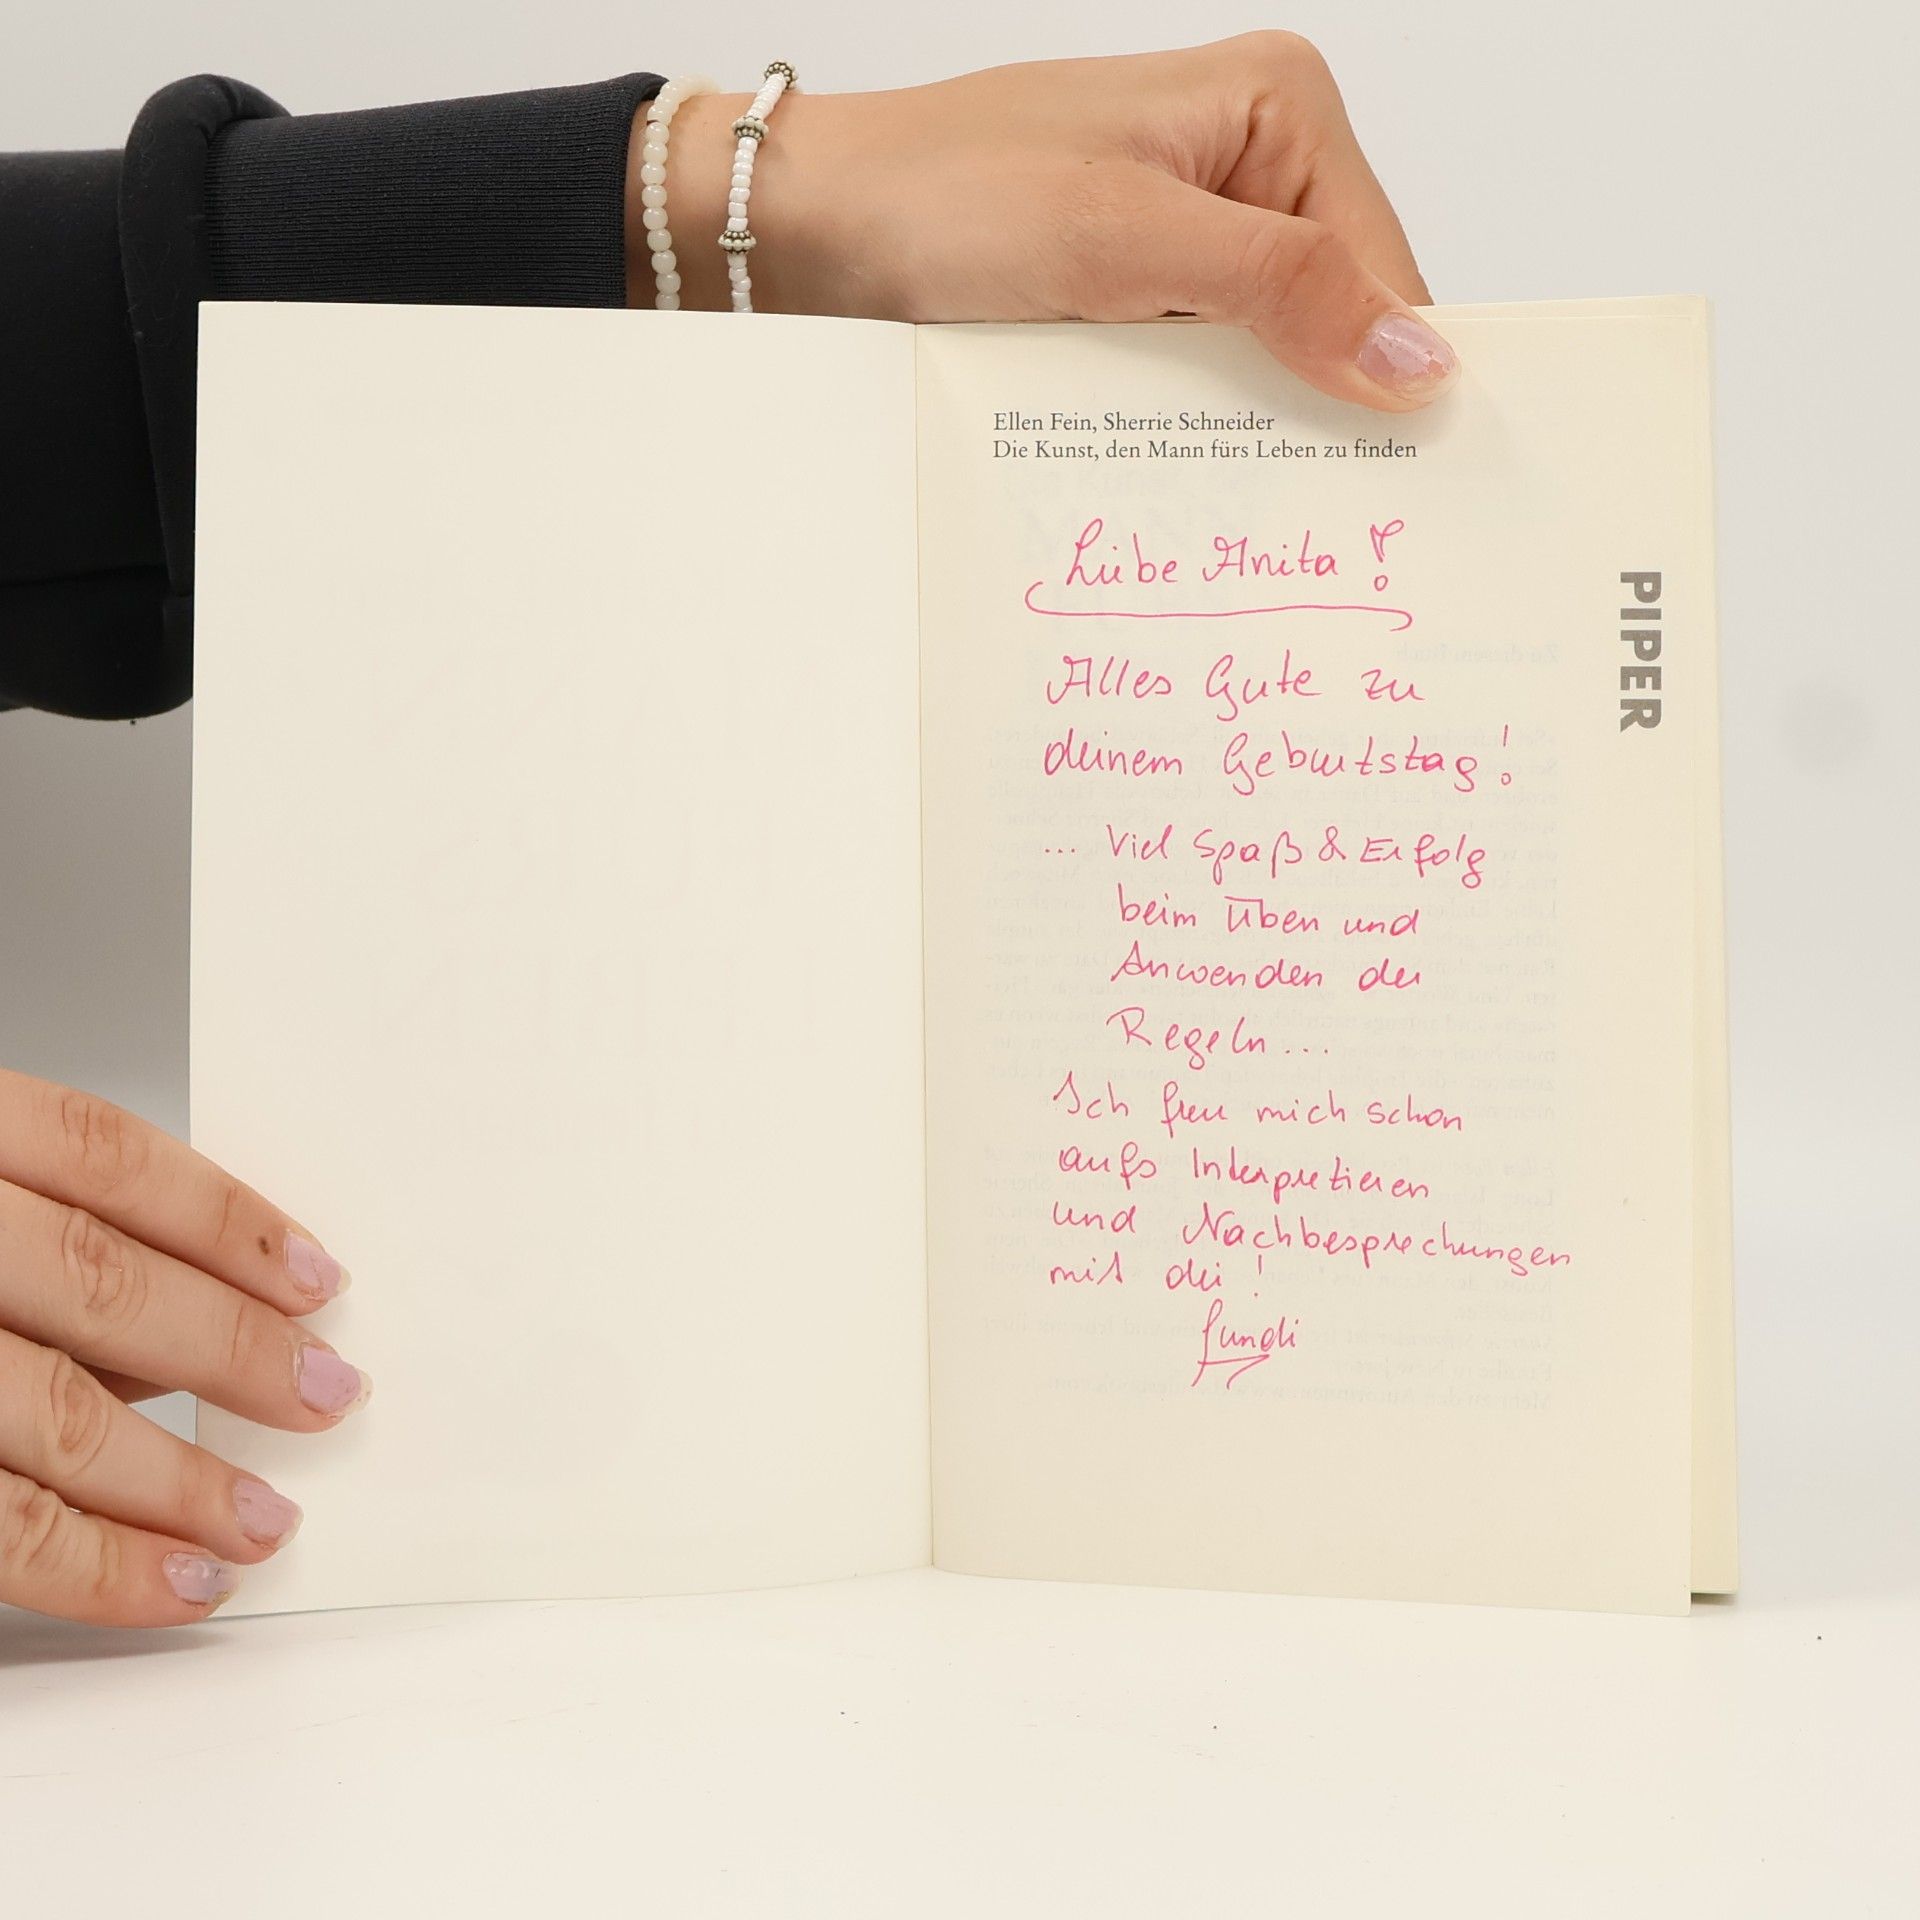 Ellen Fein, Sherrie Schneider
Die Kunst, den Mann fürs Leben zu finden
Liebe Anita!
Alles Gute zu
deinem Geburtstag!
... Viel Spaß & Erfolg
beim Üben und
Anwenden der
Regeln...
Ich freu mich schon
aufs Interpretieren
und Nachbesprechungen
mit dir!
PIPER